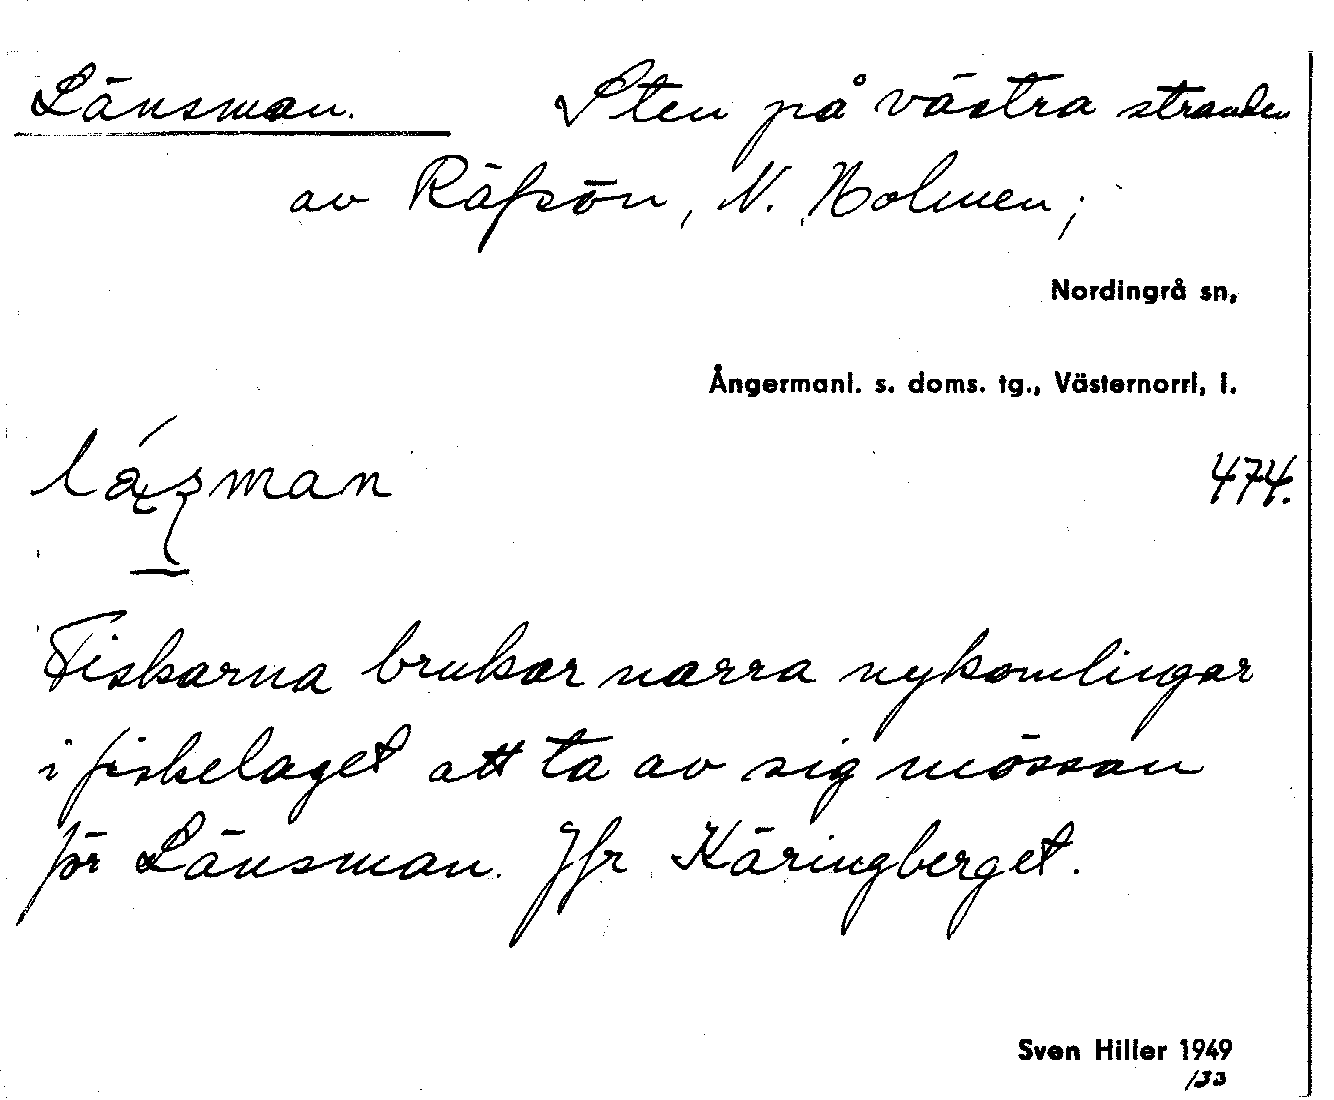 Länsman. Sten på västra stranden
av Räfsön, N. Holmen;
Nordingrå sn,
Ångermanl. s. doms. tg., Västernorrl, l.
474.
Fiskarna brukar narra nykomlingar
i fiskelaget att ta av sig mössan
för Länsman. Jfr Käringberget.
Sven Hiller 1949
/33